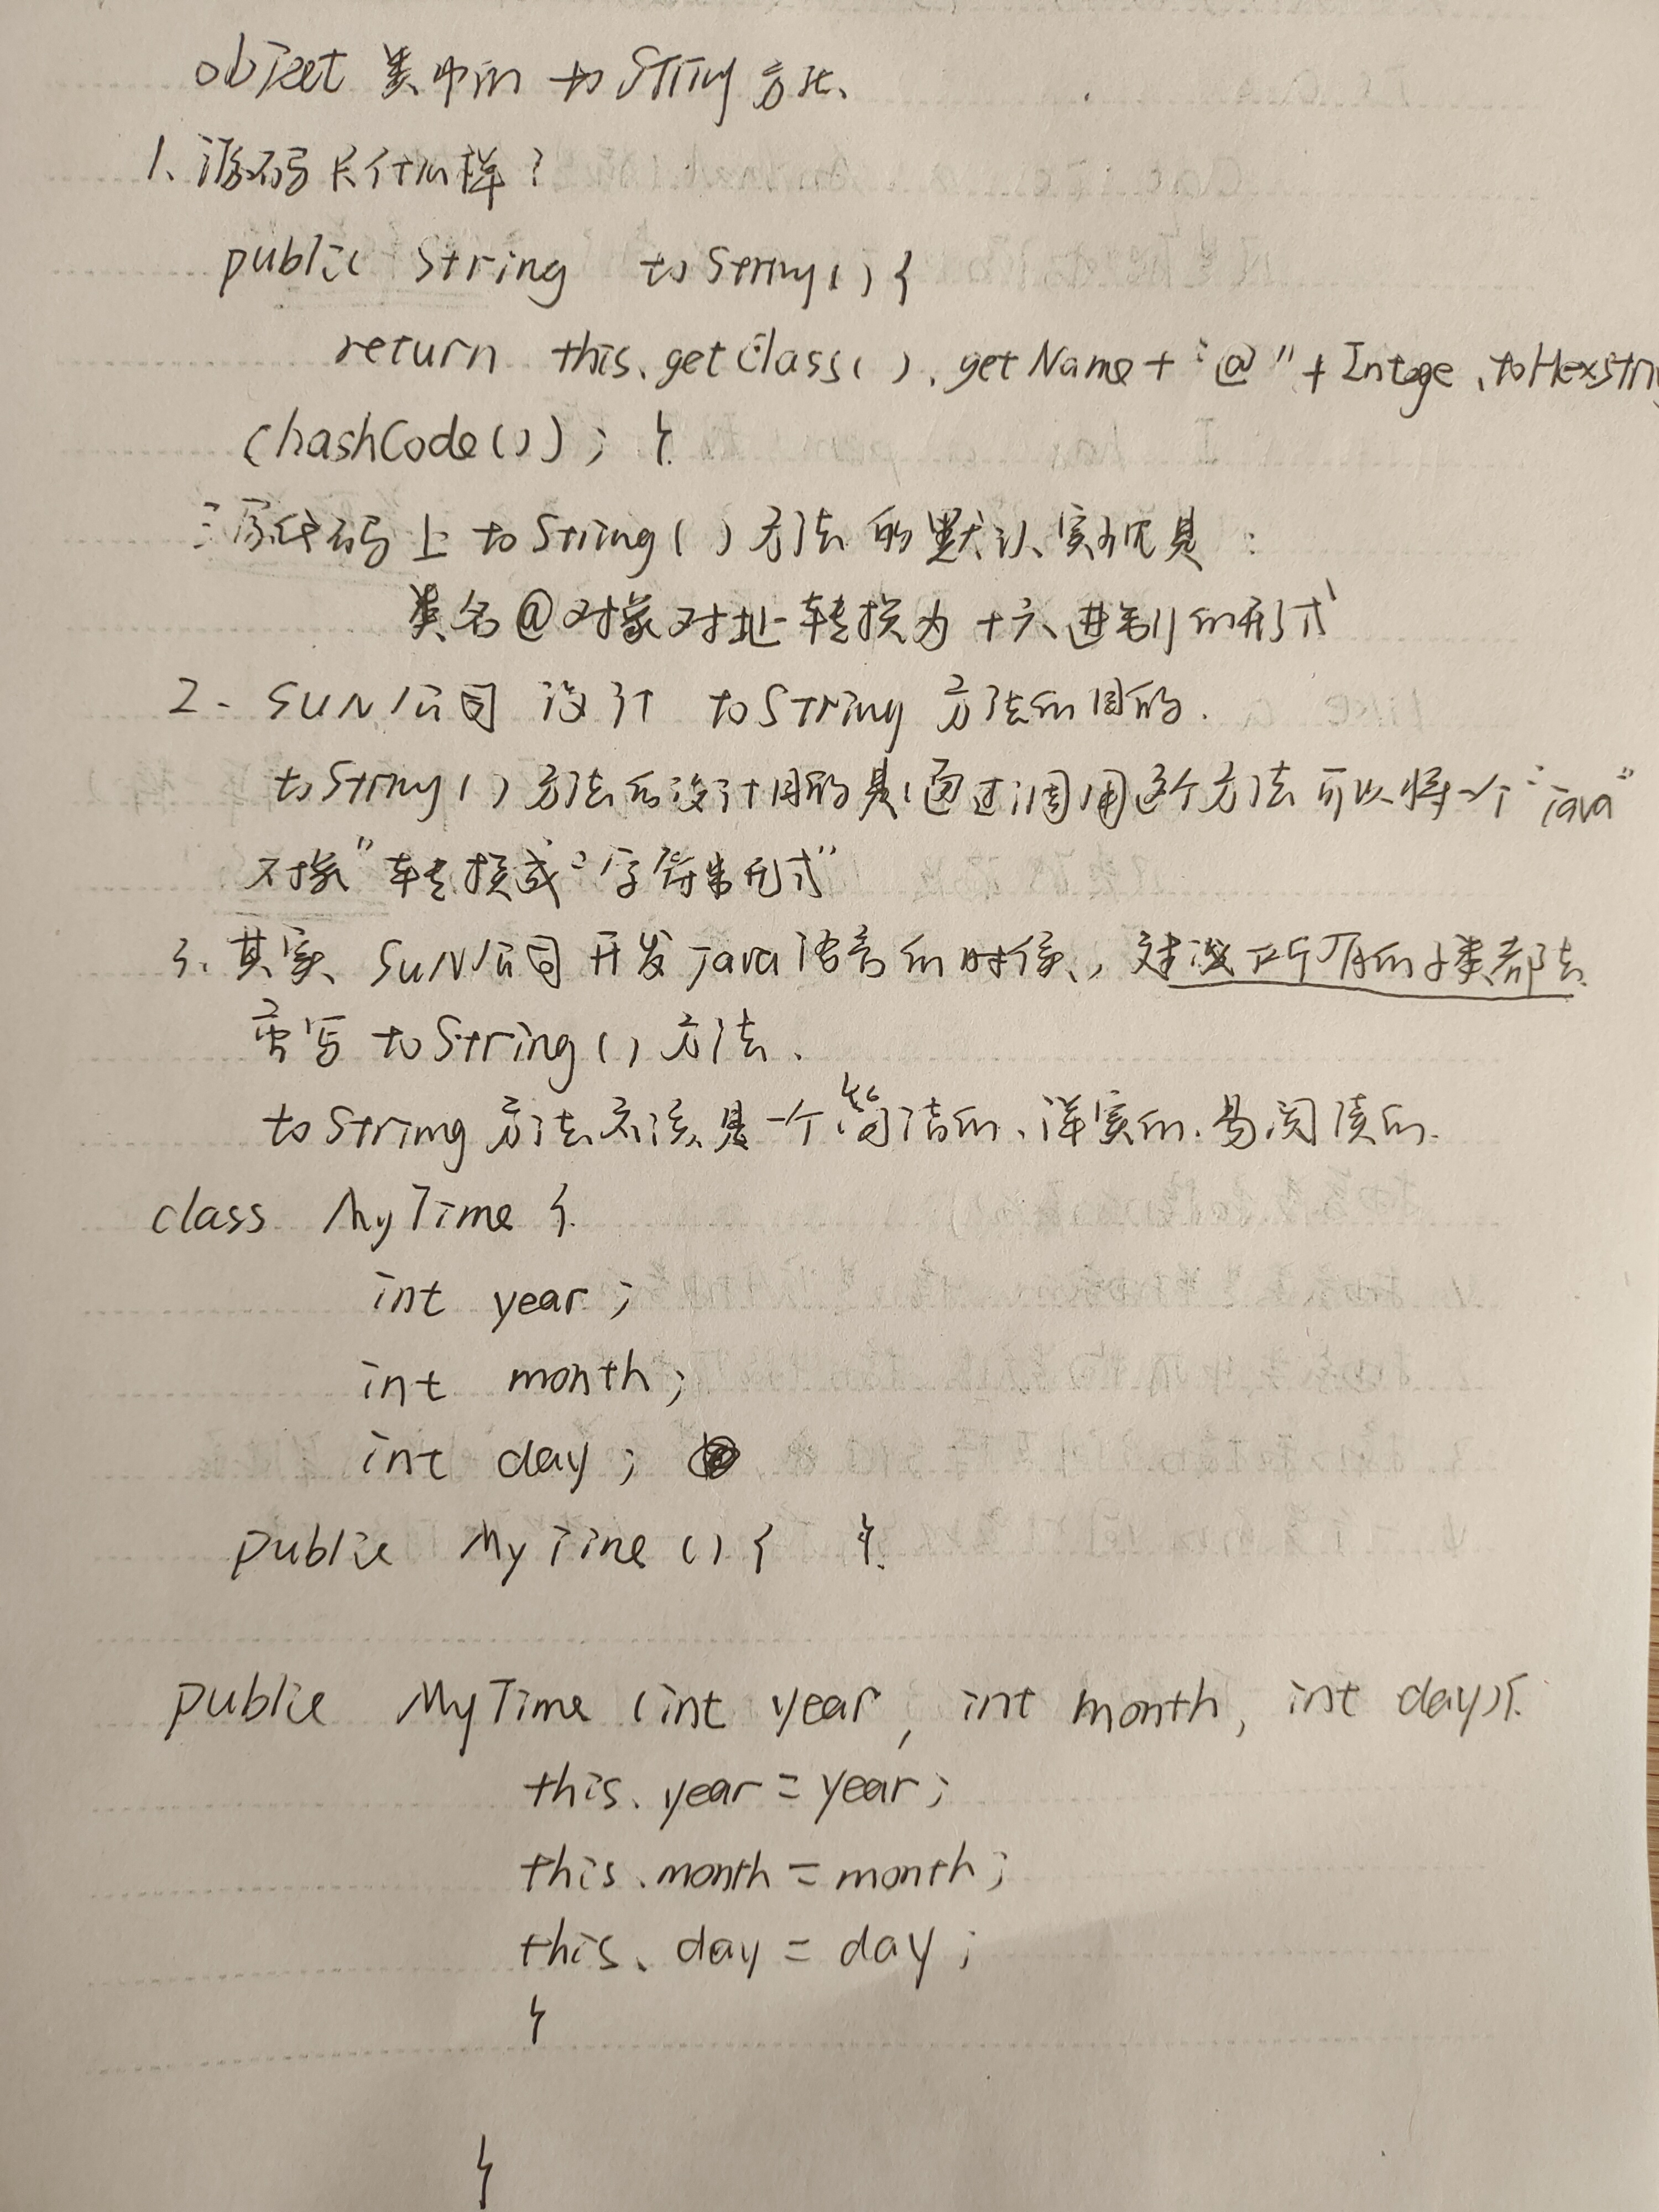 object 类中的 toString 方法、
1、源码长什么样?
public String toString(){
return this.getClass().getName+"@"+Intege.toHexStrin
(hashCode()); }
源代码上 toString() 方法的默认实现是:
类名@对象对址转换为十六进制的形式
2. SUN公司 设计 toString 方法的目的.
toString()方法的设计目的是:通过调用这个方法可以将一个"java"
对象"转换成"字符串形式"
3. 其实 SUN公司开发java语言的时候,建议所有的子类都去
重写 toString() 方法.
toString 方法应该是一个简洁的、详实的、易阅读的.
class MyTime {
int year;
int month;
int day;
public MyTime(){ }
public MyTime (int year, int month, int day){
this.year=year;
this.month=month;
this.day=day;
}
}